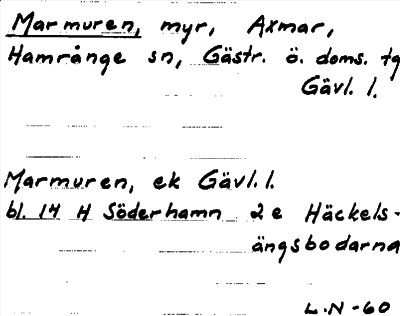 Marmuren, myr, Axmar,
Hamrånge sn, Gästr. ö. doms. tg
Gävl. l.
Marmuren, ek Gävl. l.
bl. 14 H Söderhamn 2 e Häckels-
ängsbodarna
L.N -60